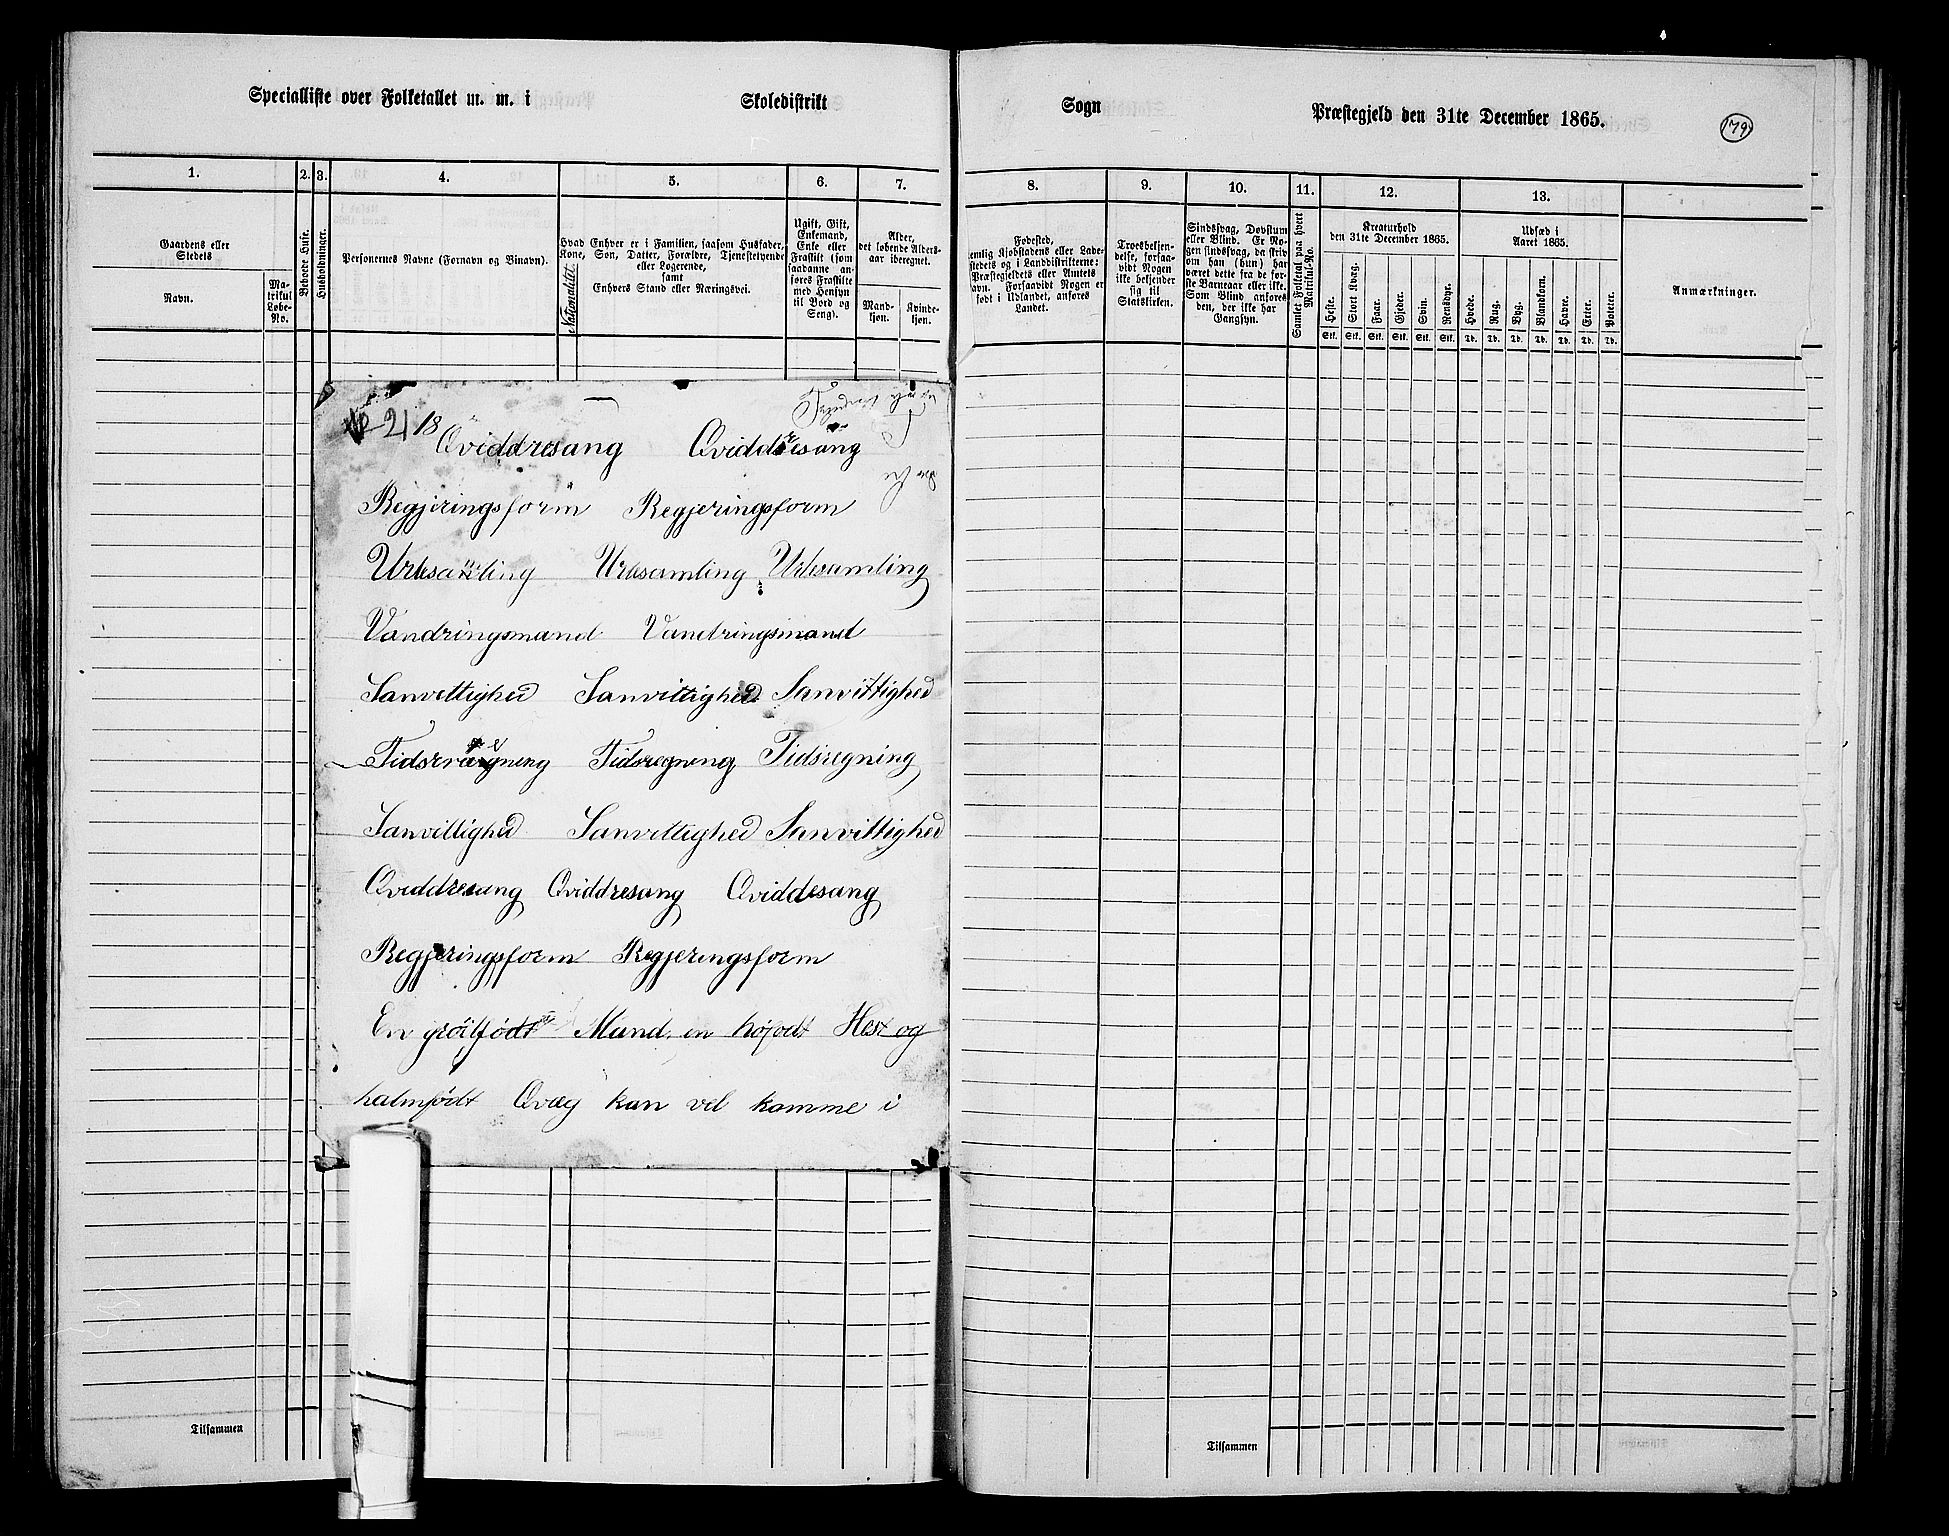 Specialliste over Folketallet m. m. i Skoledistrikt Sogn Præstegjeld den 31te December 1865.
179
1. 2. 3. 4. 5. 6. 7. 8. 9. 10. 11. 12. 13.
Gaardens eller Stedets
Navn.
Matrikul Løbe-No.
Beboede Huse.
Husholdninger.
Personernes Navne (Fornavn og Binavn).
Nationalitet.
Hvad Enhver er i Familien, saasom Husfader, Kone, Søn, Datter, Forældre, Tjenestetyende eller Logerende,
samt
Enhvers Stand eller Næringsvei.
Ugift, Gift, Enkemand, Enke eller Fraskilt (som saadanne anføres Fraskilte med Hensyn til Bord og Seng).
Alder, det løbende Alders-aar iberegnet.
Mand-kjøn.
Kvinde-kjøn.
Fødested, nemlig Kjøbstadens eller Ladestedets og i Landdistrikterne: Præstegjeldets eller Amtets Navn. Forsaavidt Nogen er født i Udlandet, anføres Landet.
Troesbekjendelse, forsaavidt Nogen ikke bekjender sig til Statskirken.
Sindssvag, Døvstum eller Blind. Er Nogen sindssvag, da skriv om han (hun) har været dette fra de første Barneaar eller ikke. Som Blind anføres den, der ikke har Gangsyn.
Samlet Folketal paa hvert Matrikul-No.
Kreaturhold den 31te December 1865.
Heste. Stort Kvæg. Faar. Gjeder. Svin. Rensdyr.
Stk. Stk. Stk. Stk. Stk. Stk.
Udsæd i Aaret 1865.
Hvede. Rug. Byg. Blandkorn. Havre. Erter. Poteter.
Td. Td. Td. Td. Td. Td. Td.
Anmærkninger.
21 18
Qviddresang Qviddresang
Regjeringsform Regjeringsform
Urbsamling Urbsamling Urbsamling
Vandringsmand Vandringsmand
Sanvettighed Sanvittighed Sanvittighed
Tidsrægning Tidsregning Tidsregning
Sanvittighed Sanvittighed Sanvittighed
Qviddresang Qviddresang Qviddesang
Regjeringsform Regjeringsform
En grötfödt Mand, en høfödt Hest og
halmfödt Qvæg kan vel komme i
Tilsammen
Tilsammen